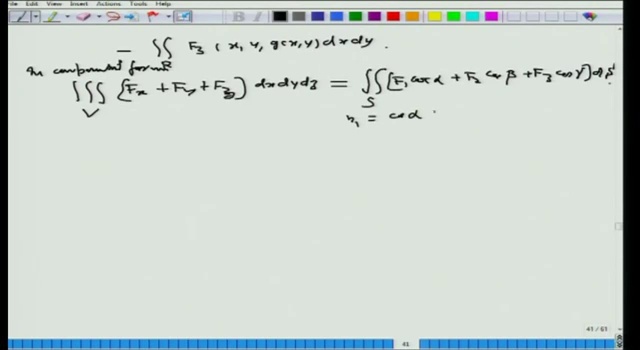 File Edit View Insert Actions Tools Help
− ∬_R F₃ (x, y, g(x,y)) dx dy.
In component form
∭_V [F_x + F_y + F_z] dx dy dz = ∬_S [F₁ cos α + F₂ cos β + F₃ cos γ] ds
n₁ = cos α
41 / 61
41